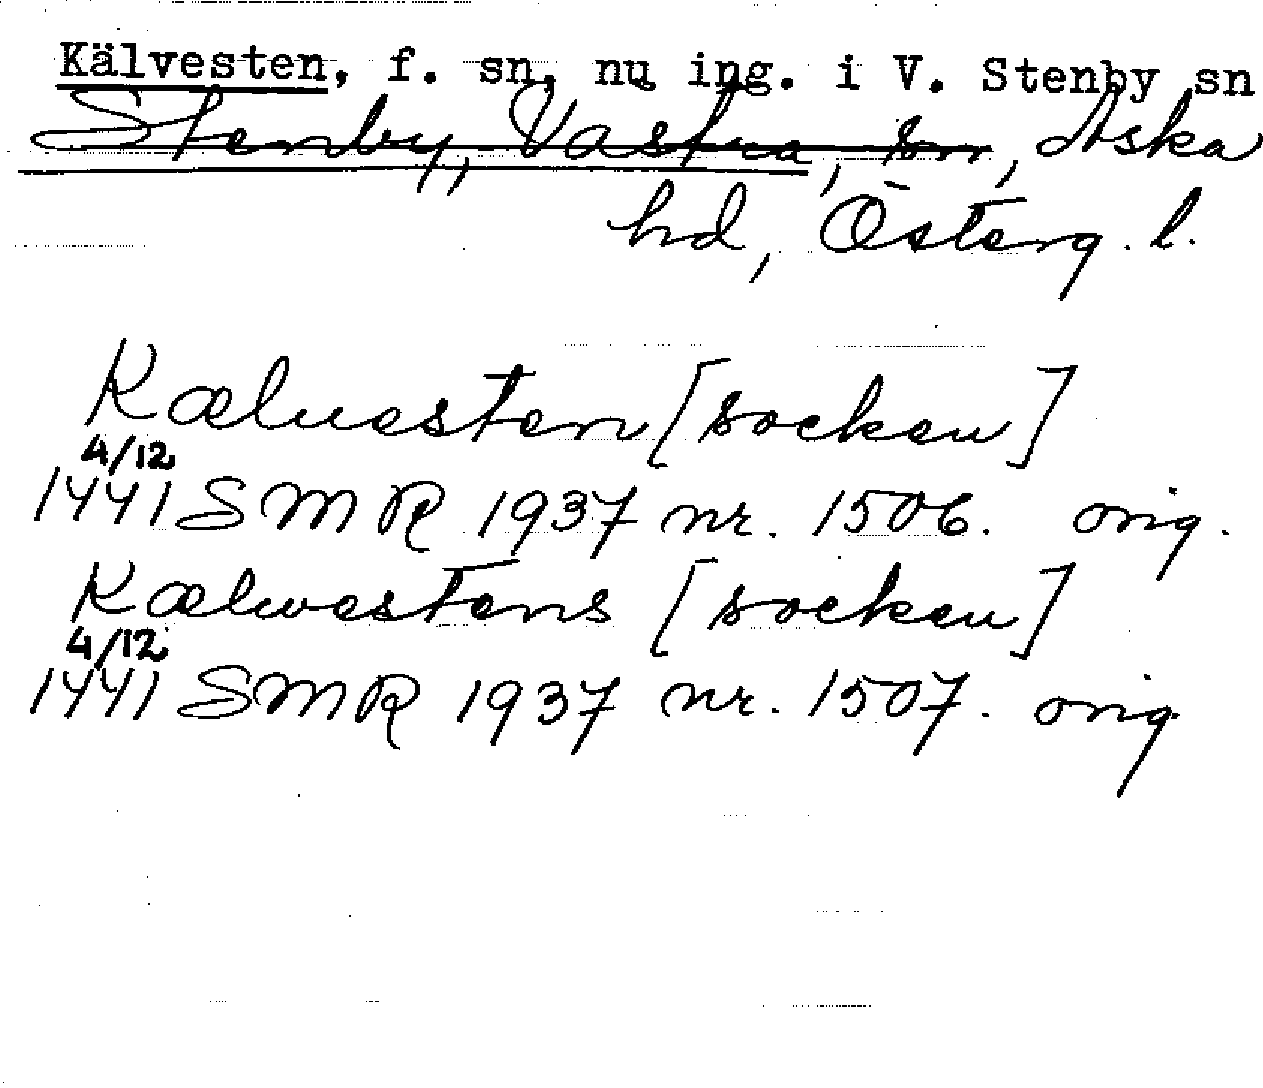 Kälvesten, f. sn, nu ing. i V. Stenby sn
Stenby, Västra, sn, Aska
hd, Österg. l.
Kæluesten [socken]
4/12
1441 SMR 1937 nr. 1506. orig.
Kælwestens [socken]
4/12
1441 SMR 1937 nr. 1507. orig.